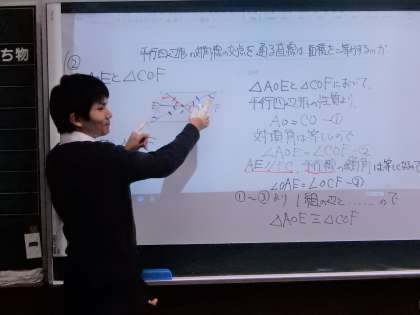 ち物
平行四辺形の対角線の交点を通る直線は面積を二等分するのか
②
AEと△COF
△AOEと△COFにおいて、
平行四辺形の性質より、
AO=CO ー①
対頂角は等しいので
∠AOE=∠COF ー②
AE//FC、平行線の錯角は等しいので
∠OAE=∠OCF ー③
①～③より 1組の辺と……ので
△AOE≡△COF